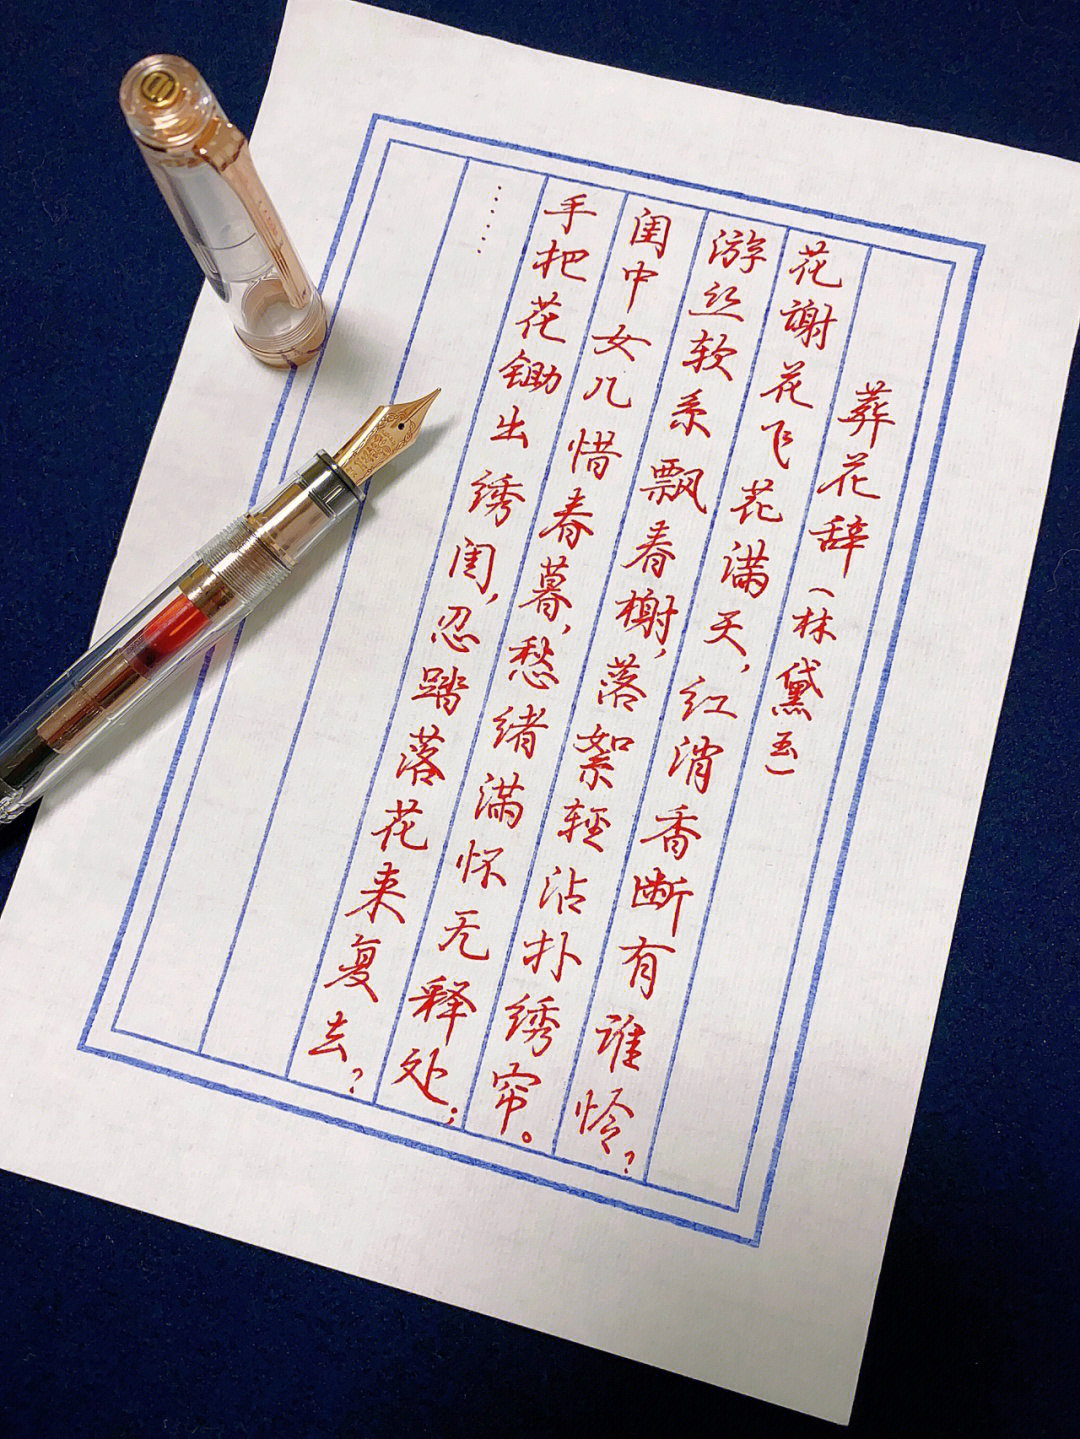 葬花辞(林黛玉)
花谢花飞花满天,红消香断有谁怜?
游丝软系飘春榭,落絮轻沾扑绣帘。
闺中女儿惜春暮,愁绪满怀无释处;
手把花锄出绣闺,忍踏落花来复去?
……